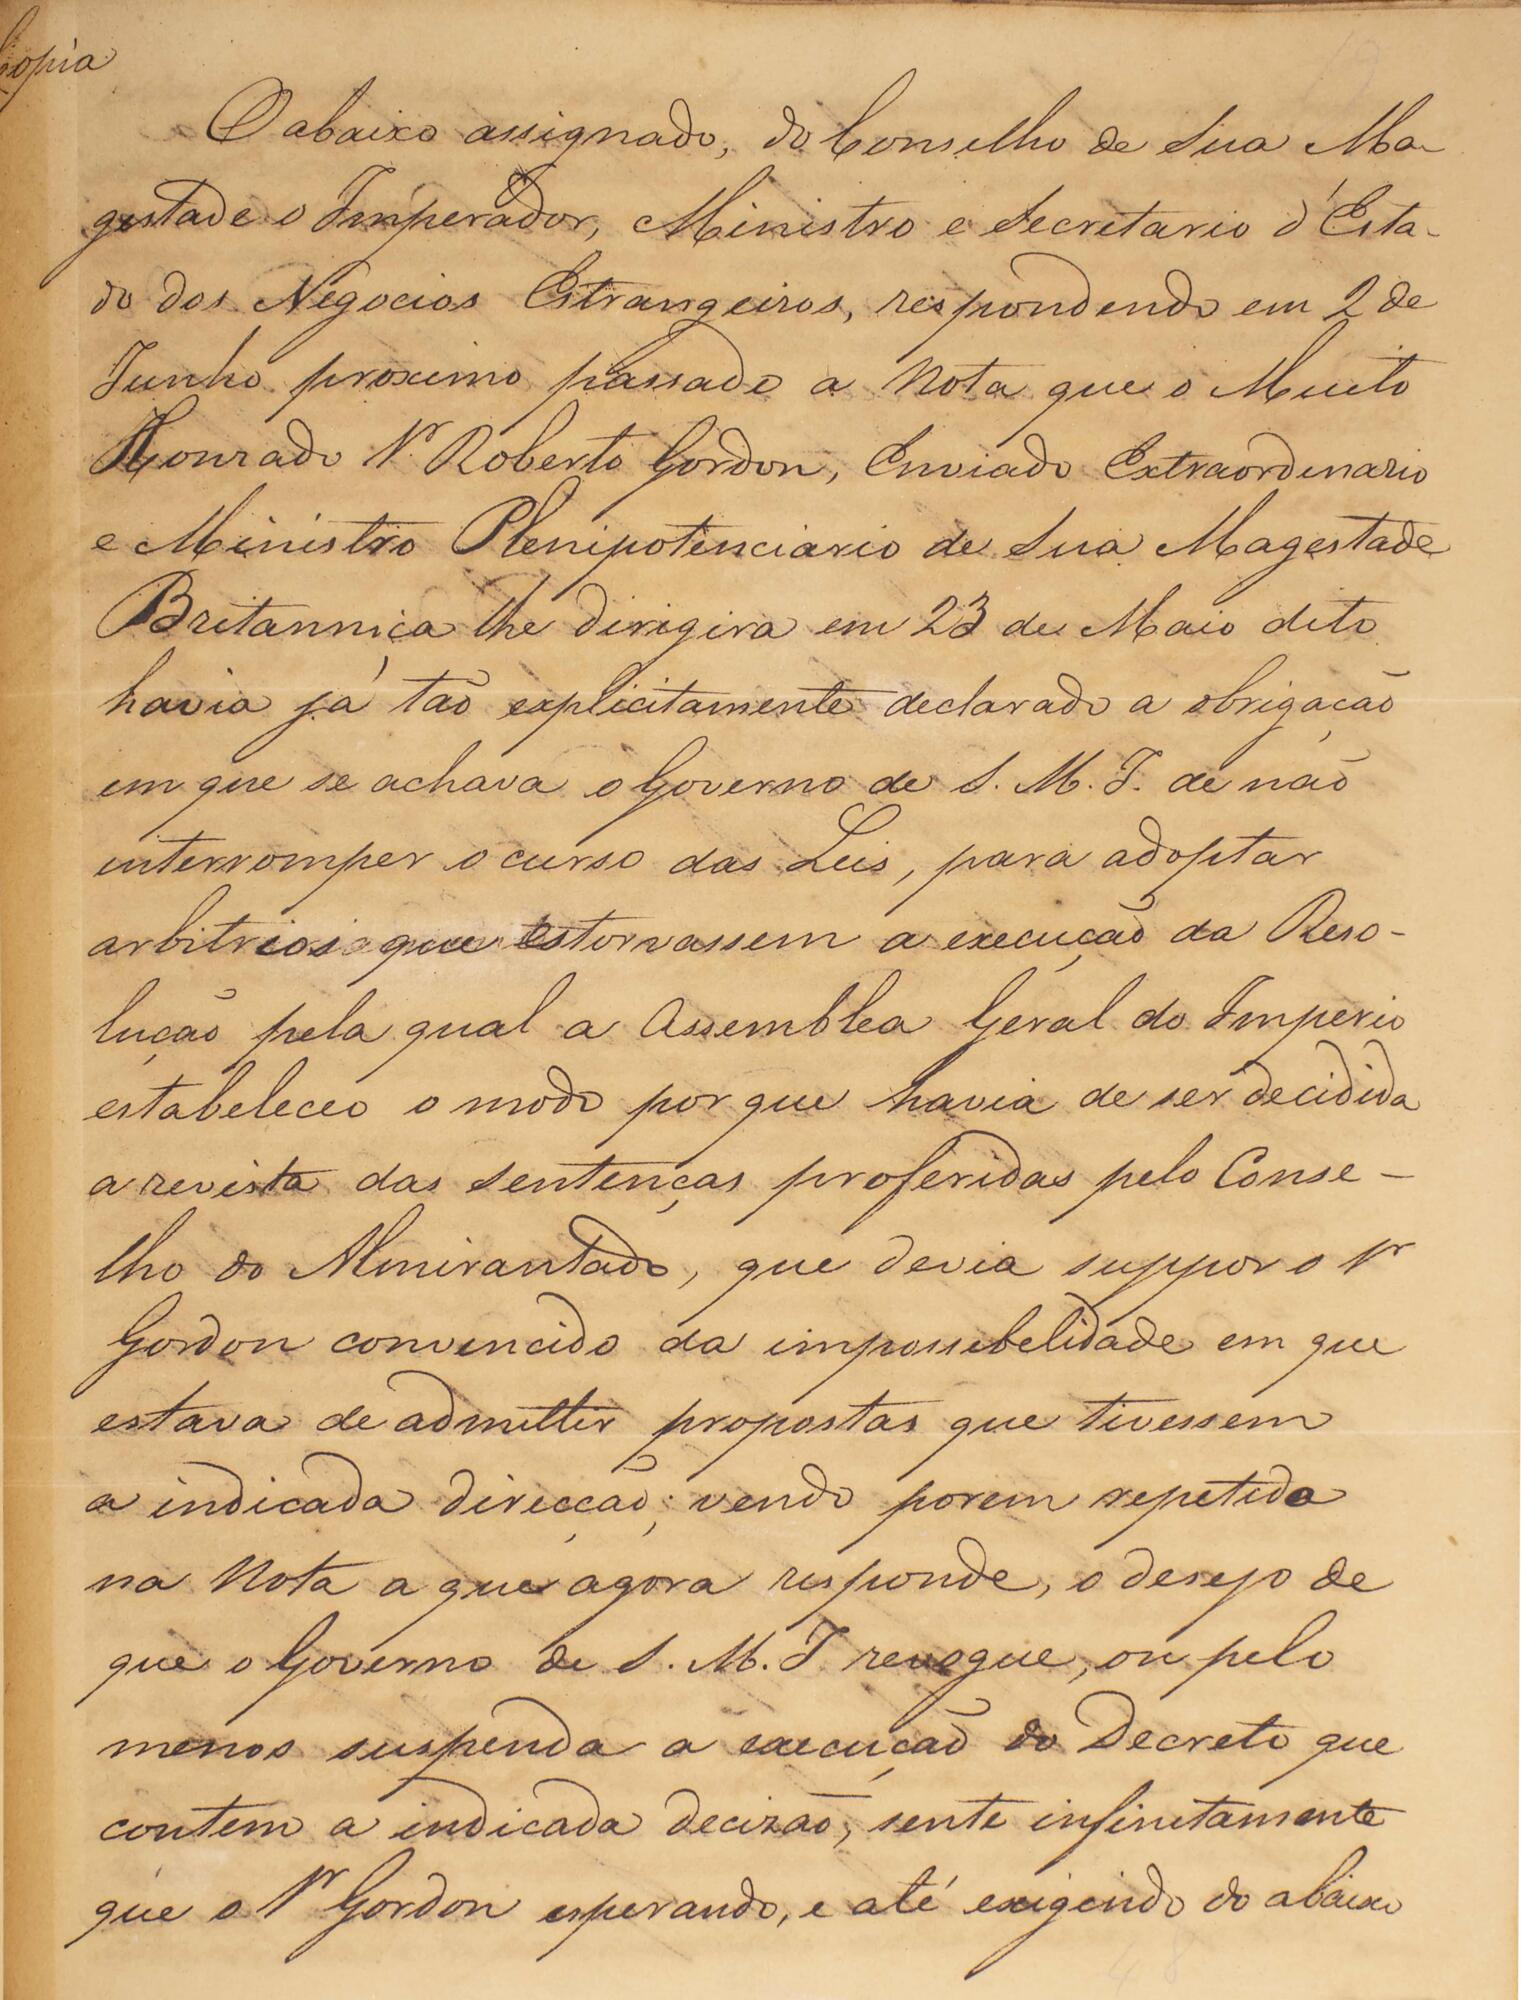 Copia
O abaixo assignado, do Conselho de Sua Ma-
gestade o Imperador, Ministro e Secretario d'Esta-
do dos Negocios Estrangeiros, respondendo em 2 de
Junho proximo passado a Nota que o Muito
Honrado Sr. Roberto Gordon, Enviado Extraordenario
e Ministro Plenipotenciario de Sua Magestade
Britannica lhe dirigira em 23 de Maio dito
havia já tão explicitamente declarado a obrigação
em que se achava o Governo de S. M. I. de não
interromper o curso das Leis, para adoptar
arbitrios que estorvassem a execução da Reso-
lução pela qual a Assemblea Geral do Imperio
estabeleceo o modo por que havia de ser decidida
a revista das sentenças proferidas pelo Conse-
lho do Almirantado, que devia suppor o Sr
Gordon convencido da impossibelidade em que
estava de admittir propostas que tivessem
a indicada direcção; vendo porem repetido
na Nota a que agora responde, o desejo de
que o Governo de S. M. I revogue, ou pelo
menos suspenda a execução do Decreto que
contem a indicada decizão, sente infinitamente
que o Sr Gordon esperando, e até exigindo do abaixo
48